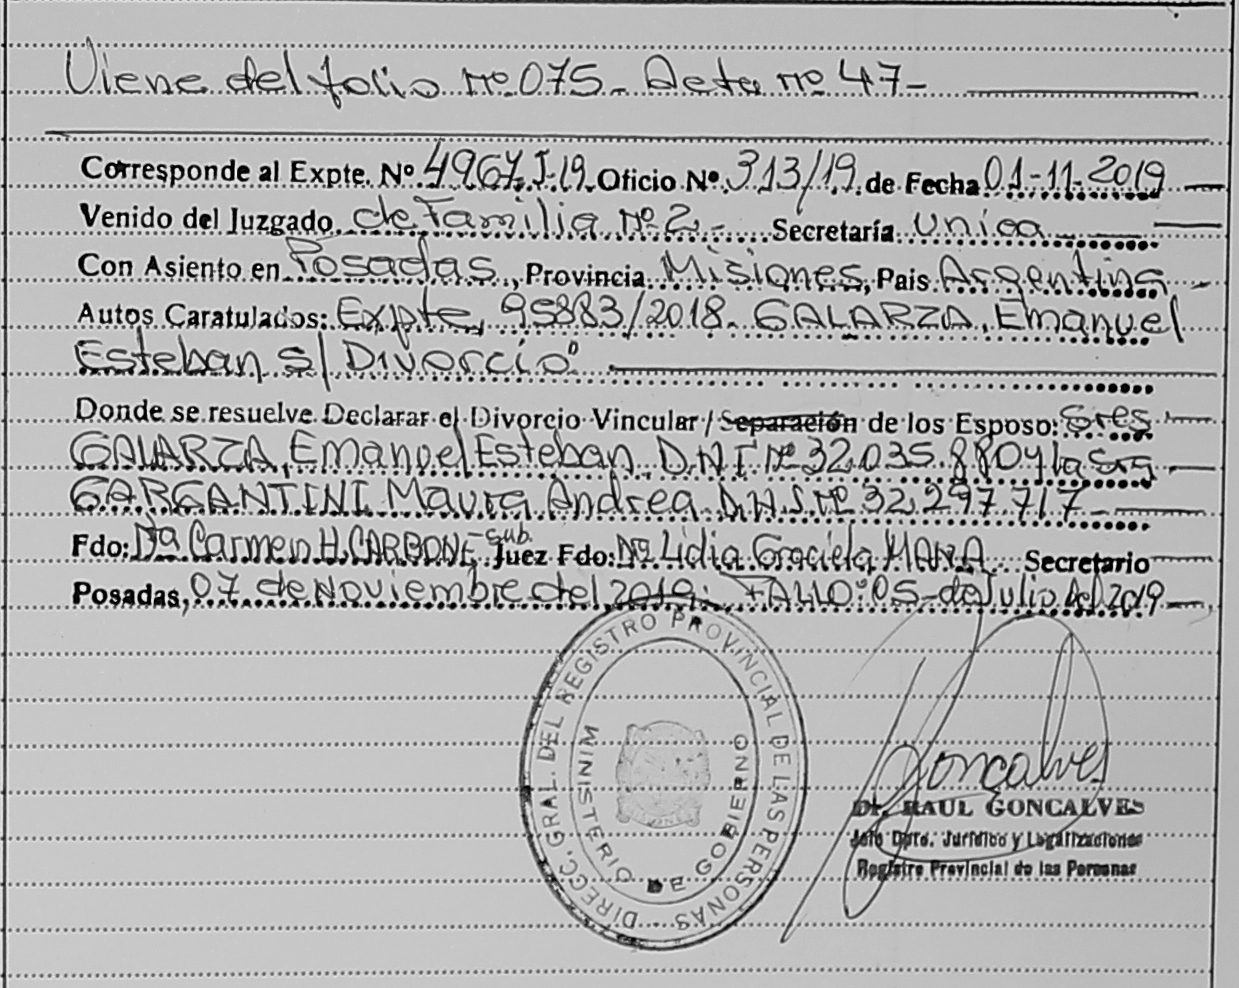 Viene del folio Nº 075 - Acta Nº 47 -
Corresponde al Expte. Nº 4967 J-19. Oficio Nº 313/19. de Fecha 01-11-2019
Venido del Juzgado de Familia Nº 2 - Secretaría unica
Con Asiento en Posadas, Provincia Misiones, Pais Argentina
Autos Caratulados: Expte. 95883/2018. GALARZA, Emanuel
Esteban s/ Divorcio"
Donde se resuelve Declarar el Divorcio Vincular / Separación de los Esposo: Sres
GALARZA, Emanuel Esteban, D.N.I Nº 32.035.880 y la Sra
GARGANTINI Maura Andrea D.N.I. Nº 32.297.717 -
Fdo: Dra Carmen H. CARBONE sub. Juez Fdo: Dra. Lidia Graciela MANA Secretario
Posadas, 07 de Noviembre del 2019. FALLO: 05 - de Julio del 2019
DIRECC. GRAL. DEL REGISTRO PROVINCIAL DE LAS PERSONAS
MINISTERIO DE GOBIERNO
Goncalves
Dr. RAUL GONCALVES
Jefe Dpto. Jurídico y Legalizaciones
Registro Provincial de las Personas